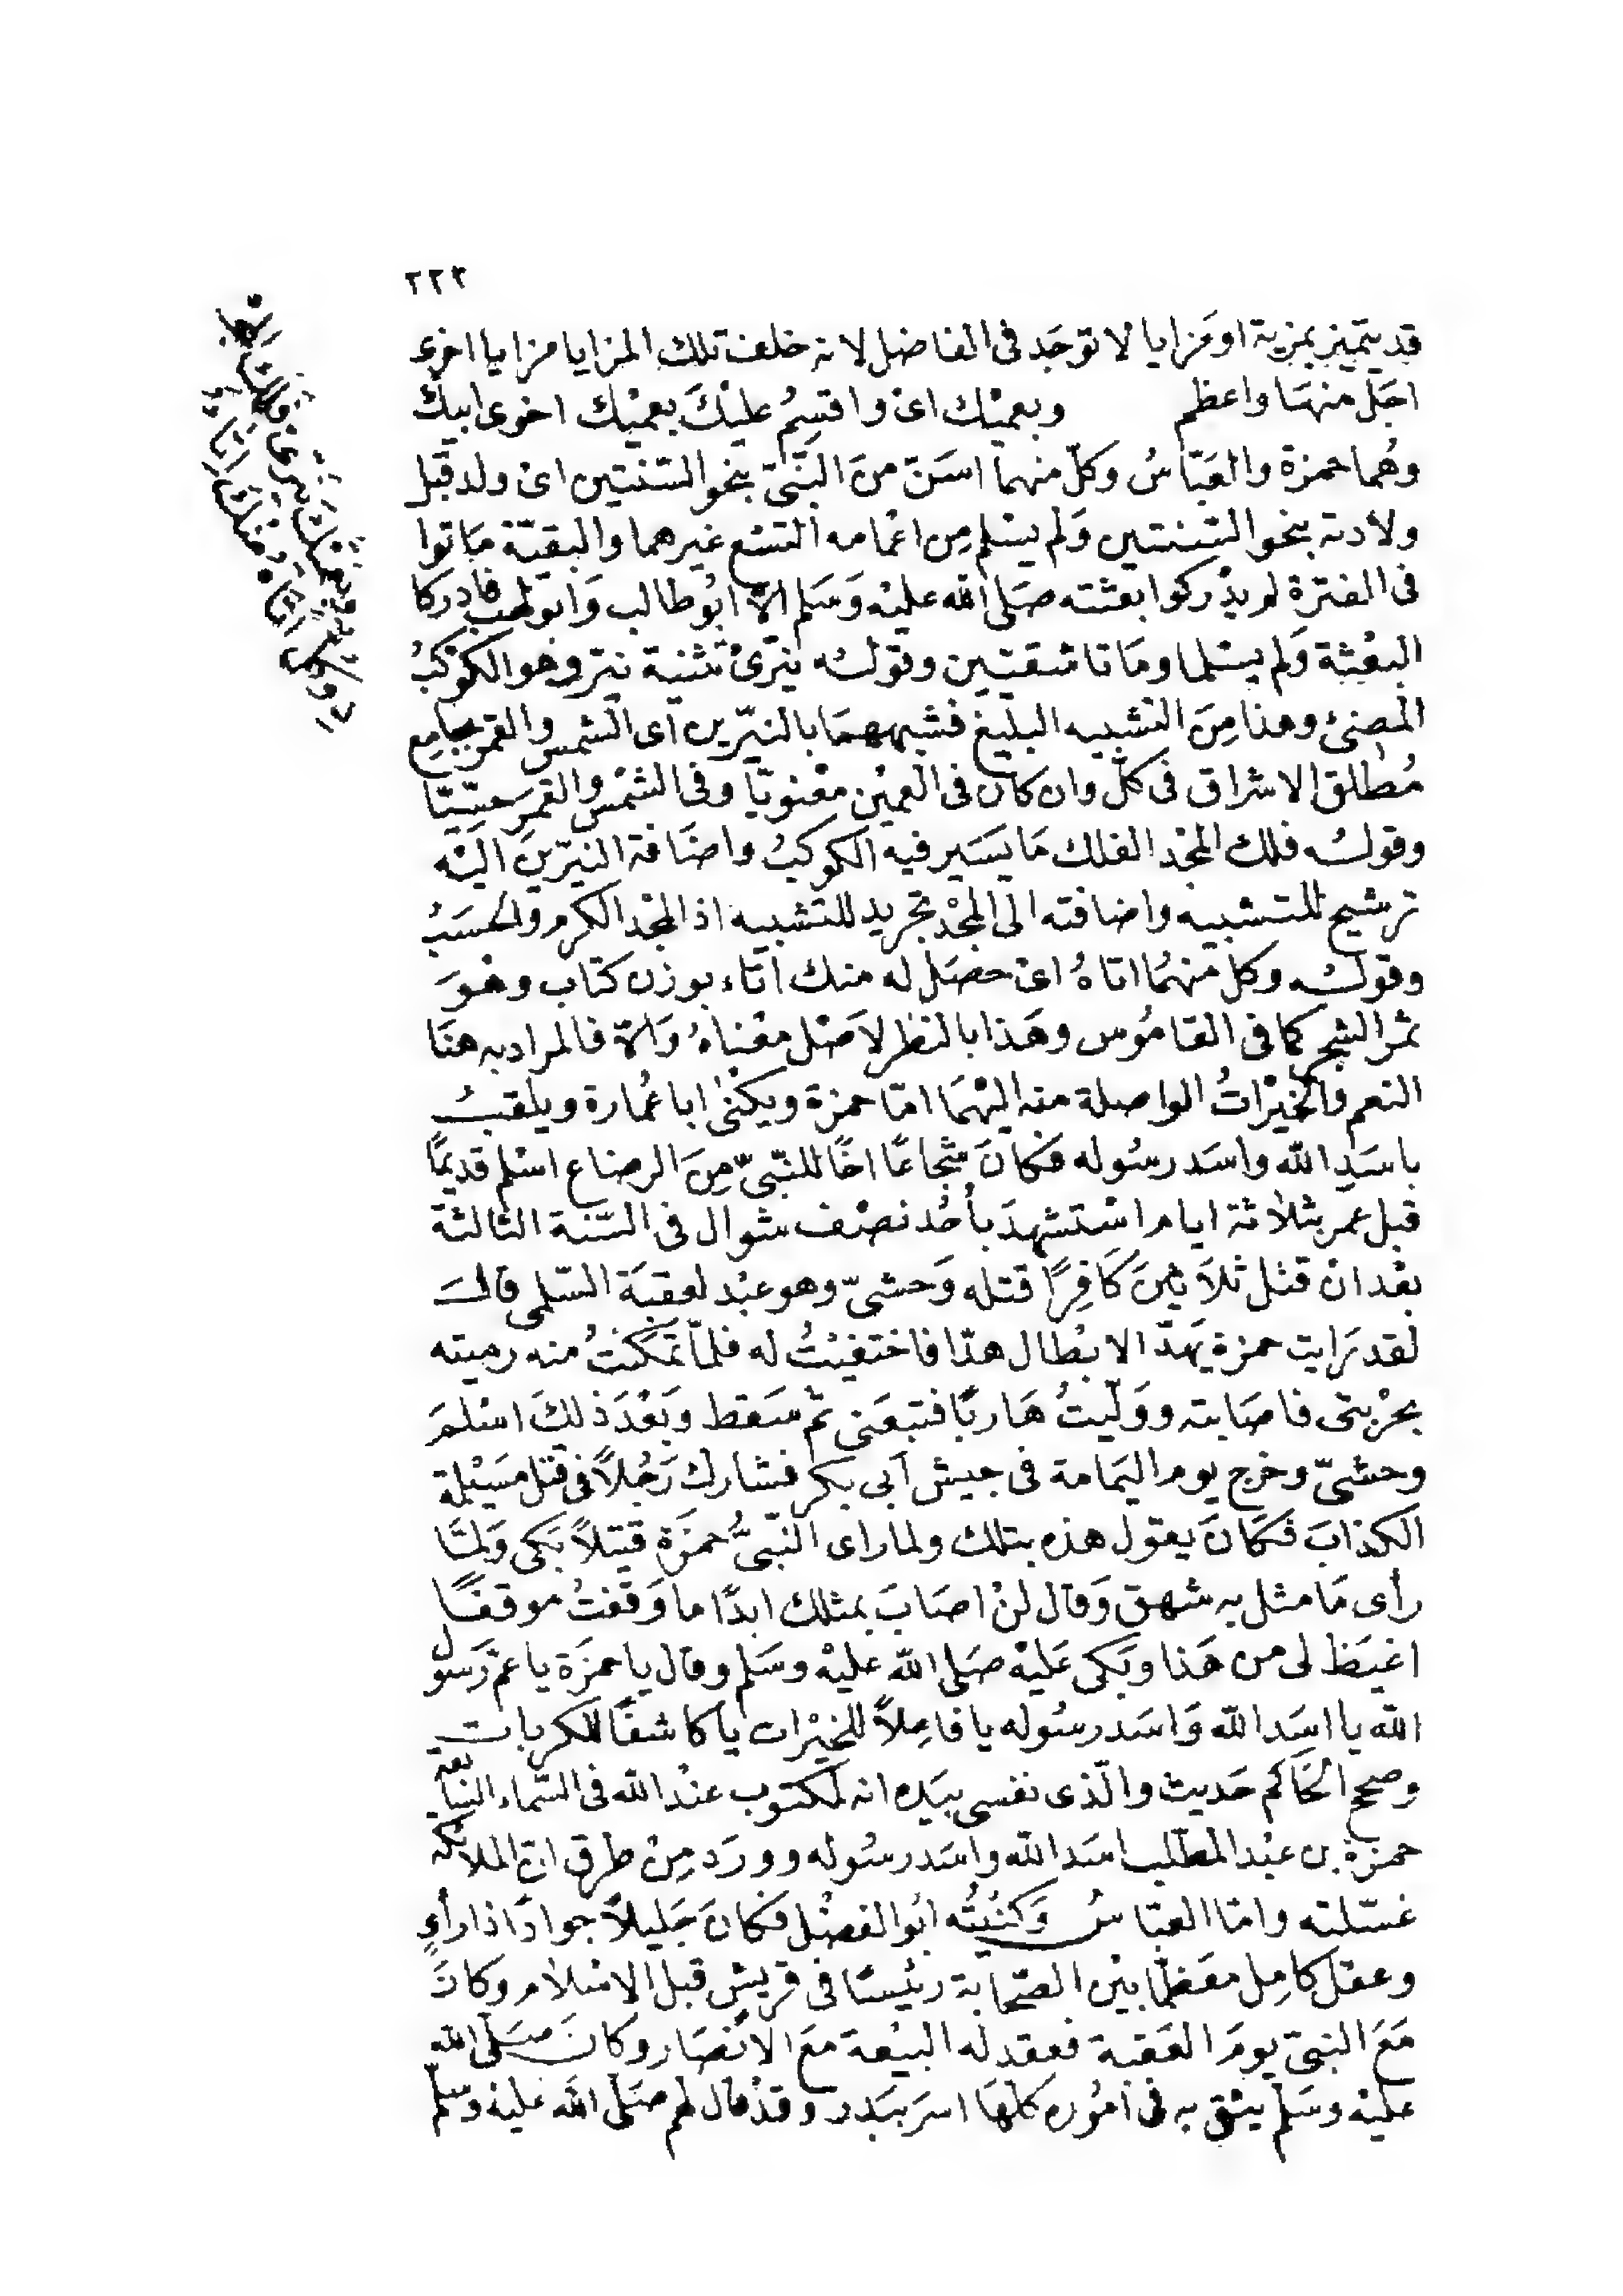 ٢٢٣
قد يتميز بمزية او مَزايا لا توجَد فى الفاضل لانه خلف تلك المزايا مزايا اخرى
اجَل منهَا واعظم وبعميْك اىْ واقسِمُ عليْكَ بعميْك اخوى ابيكَ
وهُما حمزة والعَبّاسُ وكلّ منهما اسَنّ منَ النَّبىّ بنحو السّنتين اىْ ولد قبل
ولادته بنحو السّنتين وَلم يسْلم مِن اعْمامه التسْع غيرهما والبقيّة مَاتوا
فى الفترة لم يدْركوا بعثته صَلى الله عليْه وَسَلم الاّ ابُو طالب وَابو لهب فادركا
البعْثة وَلم يسْلما ومَاتا شقيّين وقولـه نيّرىْ تثنية نيّر وهو الكوْكبُ
المضئ وهذا مِنَ التشبيه البليغ فشبههمَا بالنيّرين اى الشمس والقمر بجامِع
مُطلق الاشراق فى كلّ وان كان فى العميْن معْنويّا وفى الشمْس والقمَر حسّيّا
وقولـه فلك المجْد الفلك مَا يسَير فيه الكوكبُ واضَافة النيّرينَ اليْه
ترشيح للتشبيه واضافته الى المجْد تجريد للتشبيه اذ المجْد الكرم والحسَبُ
وقولـه وكل منهمُا اتاهُ اىْ حصَل له منك اتاء بوزن كتاب وهْوَ
ثمْر الشجر كما فى القامُوس وهَذا بالنظر لاصْل معْناهُ وَالاّ فالمراد به هنَا
النعم والخيْراتُ الواصلة منه اليْهمَا امّا حمزة ويكنىٰ ابا عُمارة ويلقبُ
باسَدِ الله واسَد رسُوله فكانَ شجاعًا اخًا للنّبىّ مِنَ الرضاع اسْلم قديمًا
قبل عمر بثلاثة ايام اسْتشهدَ بأحُد نصْف شوال فى السّنة الثالثة
بعْد انْ قتل ثلاَثينَ كَافِرًا قتله وَحشىّ وهو عبْد لعقبَة السّلمى قالـَ
لقد رَايت حمزة يَهدّ الابْطال هدّا فاختفيْتُ له فلمّا تمَكنتُ منه رميته
بحرْبتى فاصَابته ووَلّيتُ هَاربًا فتبعَنى ثمّ سَقط وبَعْدَ ذلكَ اسْلمَ
وحشىّ وخرج يوم اليمَامة فى جيش ابى بكر فشارك رَجُلاً فى قتل مسَيْلمة
الكذابَ فكَانَ يقول هذه بتلك ولما راى النّبىُّ حمزَة قيتلاً بَكى وَلمّا
رأى مَا مثل به شهق وَقال لنْ اصَابَ بمثلك ابدًا ما وَقفتُ موقفًـا
اغيَظ لى من هَذا وبَكى عَليْه صَلى الله عليْه وسَلم وقال يا حمزَة يا عمّ رَسول
الله يا اسَد الله وَاسَد رسُوله يا فاعِلاً للخيْرات يا كاشفًا للكربات
وصحح الحَاكم حَديث والّذى نفسى بيَده انه لمَكتوب عنْد الله فى السّماء السّابعَة
حمزة بن عبْد المطّلب اسَد الله واسَد رسُوله وورَد مِنْ طرق انّ الملائكة
غسّلته وامّا العبّاسُ وَكنْيتُه ابُو الفضْل فكانَ جَليلاً جوادًا ذا رأىٍ
وعقل كامِل معَظمًا بيْن الصّحَابة رئيسًا فى قريش قبل الاسْلام وكانَ
مَعَ النبىّ يومَ العَقبة فعقد له البيْعة معَ الانْصَار وكانَ صَلى الله
عليْه وسَلم يثق به فى امُوره كلهَا اسرَ ببَدر وقدْ قال لهم صَلى الله عليْه وسلم